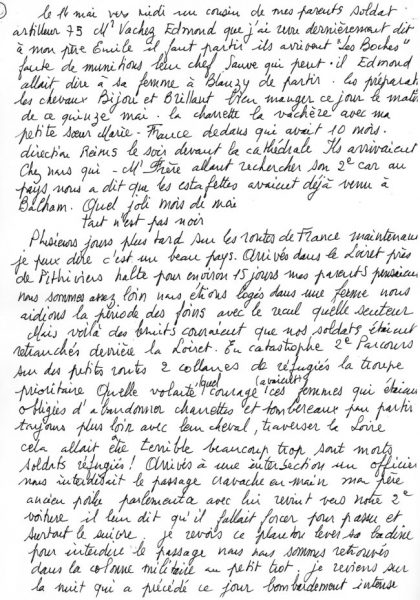 le 14 mai vers midi un cousin de mes parents soldat
artilleur 75 Mr Vachez Edmond que j'ai revu dernièrement dit
à mon père Emile il faut partir ils arrivent "les Boches"
faute de munitions leur chef sauve qui peut. il Edmond
allait dire à sa femme à Blanzy de partir. les préparatifs
les chevaux Bijou et Brillant bien manger ce jour le matin
de ce quinze mai. la charrette la vachère avec ma
petite sœur Marie-France dedans qui avait 10 mois.
direction Reims le soir devant la cathédrale Ils arrivaient
Chez nous qui - Mr Frère allant rechercher son 2e car au
pays nous a dit que les estafettes avaient déjà venu à
Balham. Quel joli mois de mai
Tout n'est pas noir
Plusieurs jours plus tard sur les routes de France maintenant
je peux dire c'est un beau pays. Arrivés dans le Loiret près
de Pithiviers halte pour environ 15 jours mes parents pensaient
nous sommes assez loin nous étions logés dans une ferme nous
aidions la période des foins avec le recul quelle senteur
Mais voilà des bruits couraient que nos soldats étaient
retranchés derrière la Loiret. En catastrophe 2e Parcours
sur des petites routes 2 collones de réfugiés la troupe
prioritaire Quelle volonté quel courage (avaient) ces femmes qui étaient
obligées d'abandonner charrettes et tombereaux pour partir
toujours plus loin avec leur cheval, traverser la Loire
cela allait être terrible beaucoup trop sont morts
soldats réfugiés! Arrivés à une intersection un officier
nous interdisait le passage cravache en main ma père
ancien poilu parlementa avec lui revint vers notre 2e
voiture il leur dit qu'il fallait forcer pour passer et
surtout le suivre. je revois ce planton lever sa badine
pour interdire le passage nous nous sommes retrouvés
dans la colonne militaire au petit trot. je reviens sur
la nuit qui a précédé ce jour bombardement intense